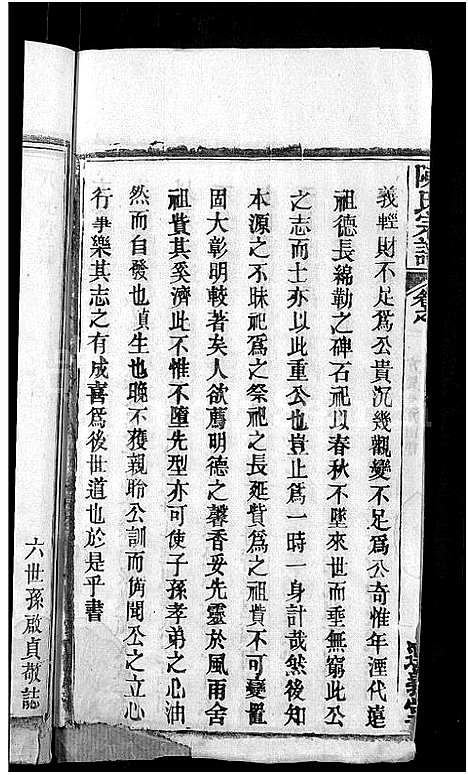 陳氏宗譜
卷之
義輕財不足爲公貴沉幾觀變不足爲公奇惟年湮代遠
祖德長綿勒之碑石祀以春秋不墜來世而垂無窮此公
之志而士亦以此重公也豈止爲一時一身計哉然後知
本源之不昧祀爲之祭祀之長延貲爲之祖貲不可變置
固大彰明較著矣人欲薦明德之馨香妥先靈於風雨舍
祖貲其奚濟此不惟不墮先型亦可使子孫孝弟之心油
然而自發也貞生也晚不獲親聆公訓而側聞公之立心
行事樂其志之有成喜爲後世道也於是乎書
六世孫啟貞敬誌